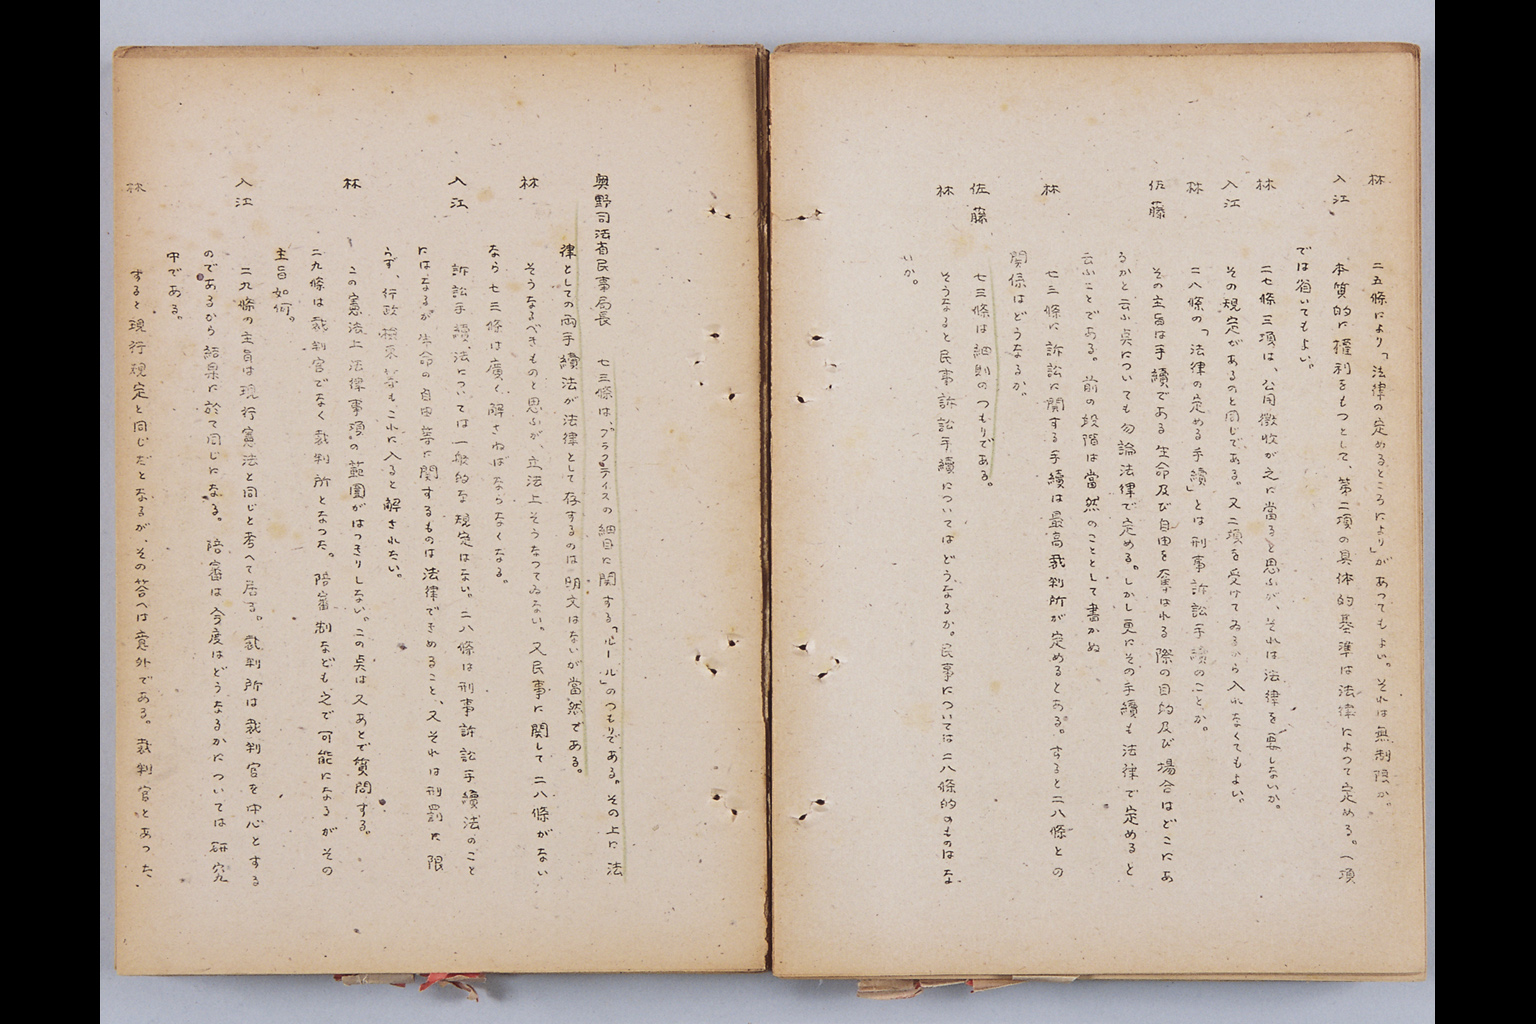 林　二五條により「法律の定めるところにより」があつてもよい。それは無制限か。
入江　本質的に權利をもつとして、第二項の具体的基準は法律によつて定める。一項
では省いてもよい。
林　二七條三項は、公用徴收が之に當ると思ふが、それは法律を要しないか。
入江　その規定があるのと同じである。又二項を受けてゐるから入れなくてもよい。
林　二八條の「法律の定める手續」とは刑事訴訟手續のことか。
佐藤　その主旨は手續である生命及び自由を奪はれる際の目的及び場合はどこにあ
るかと云ふ点についても勿論法律で定める。しかし更にその手續も法律で定めると
云ふことである。前の段階は當然のこととして書かぬ
林　七三條に訴訟に関する手續は最高裁判所が定めるとある。すると二八條との
関係はどうなるか。
佐藤　七三條は細則のつもりである。
林　そうなると民事訴訟手續についてはどうなるか。民事については二八條的のものはな
いか。
奥野司法省民事局長　七三條は、プラクティスの細目に関する「ルール」のつもりである。その上に法
律としての両手續法が法律として存するのは明文はないが當然である。
林　そうなるべきものと思ふが、立法上そうなつてゐない。又民事に関して二八條がない
なら七三條は廣く解さねばならなくなる。
入江　訴訟手續法については一般的な規定はない。二八條は刑事訴訟手續法のこと
にはなるが生命の自由等に関するものは法律できめること、又それは刑罰に限
らず、行政檢束等もこれに入ると解されたい。
林　この憲法上法律事項の範圍がはつきりしない。この点は又あとで質問する。
二九條は裁判官でなく裁判所となつた。陪審制なども之で可能になるがその
主旨如何。
入江　二九條の主旨は現行憲法と同じと考へて居る。裁判所は裁判官を中心とする
のであるから結果に於て同じになる。陪審は今度はどうなるかについては研究
中である。
林　すると現行規定と同じだとなるが、その答へは意外である。裁判官とあつた、